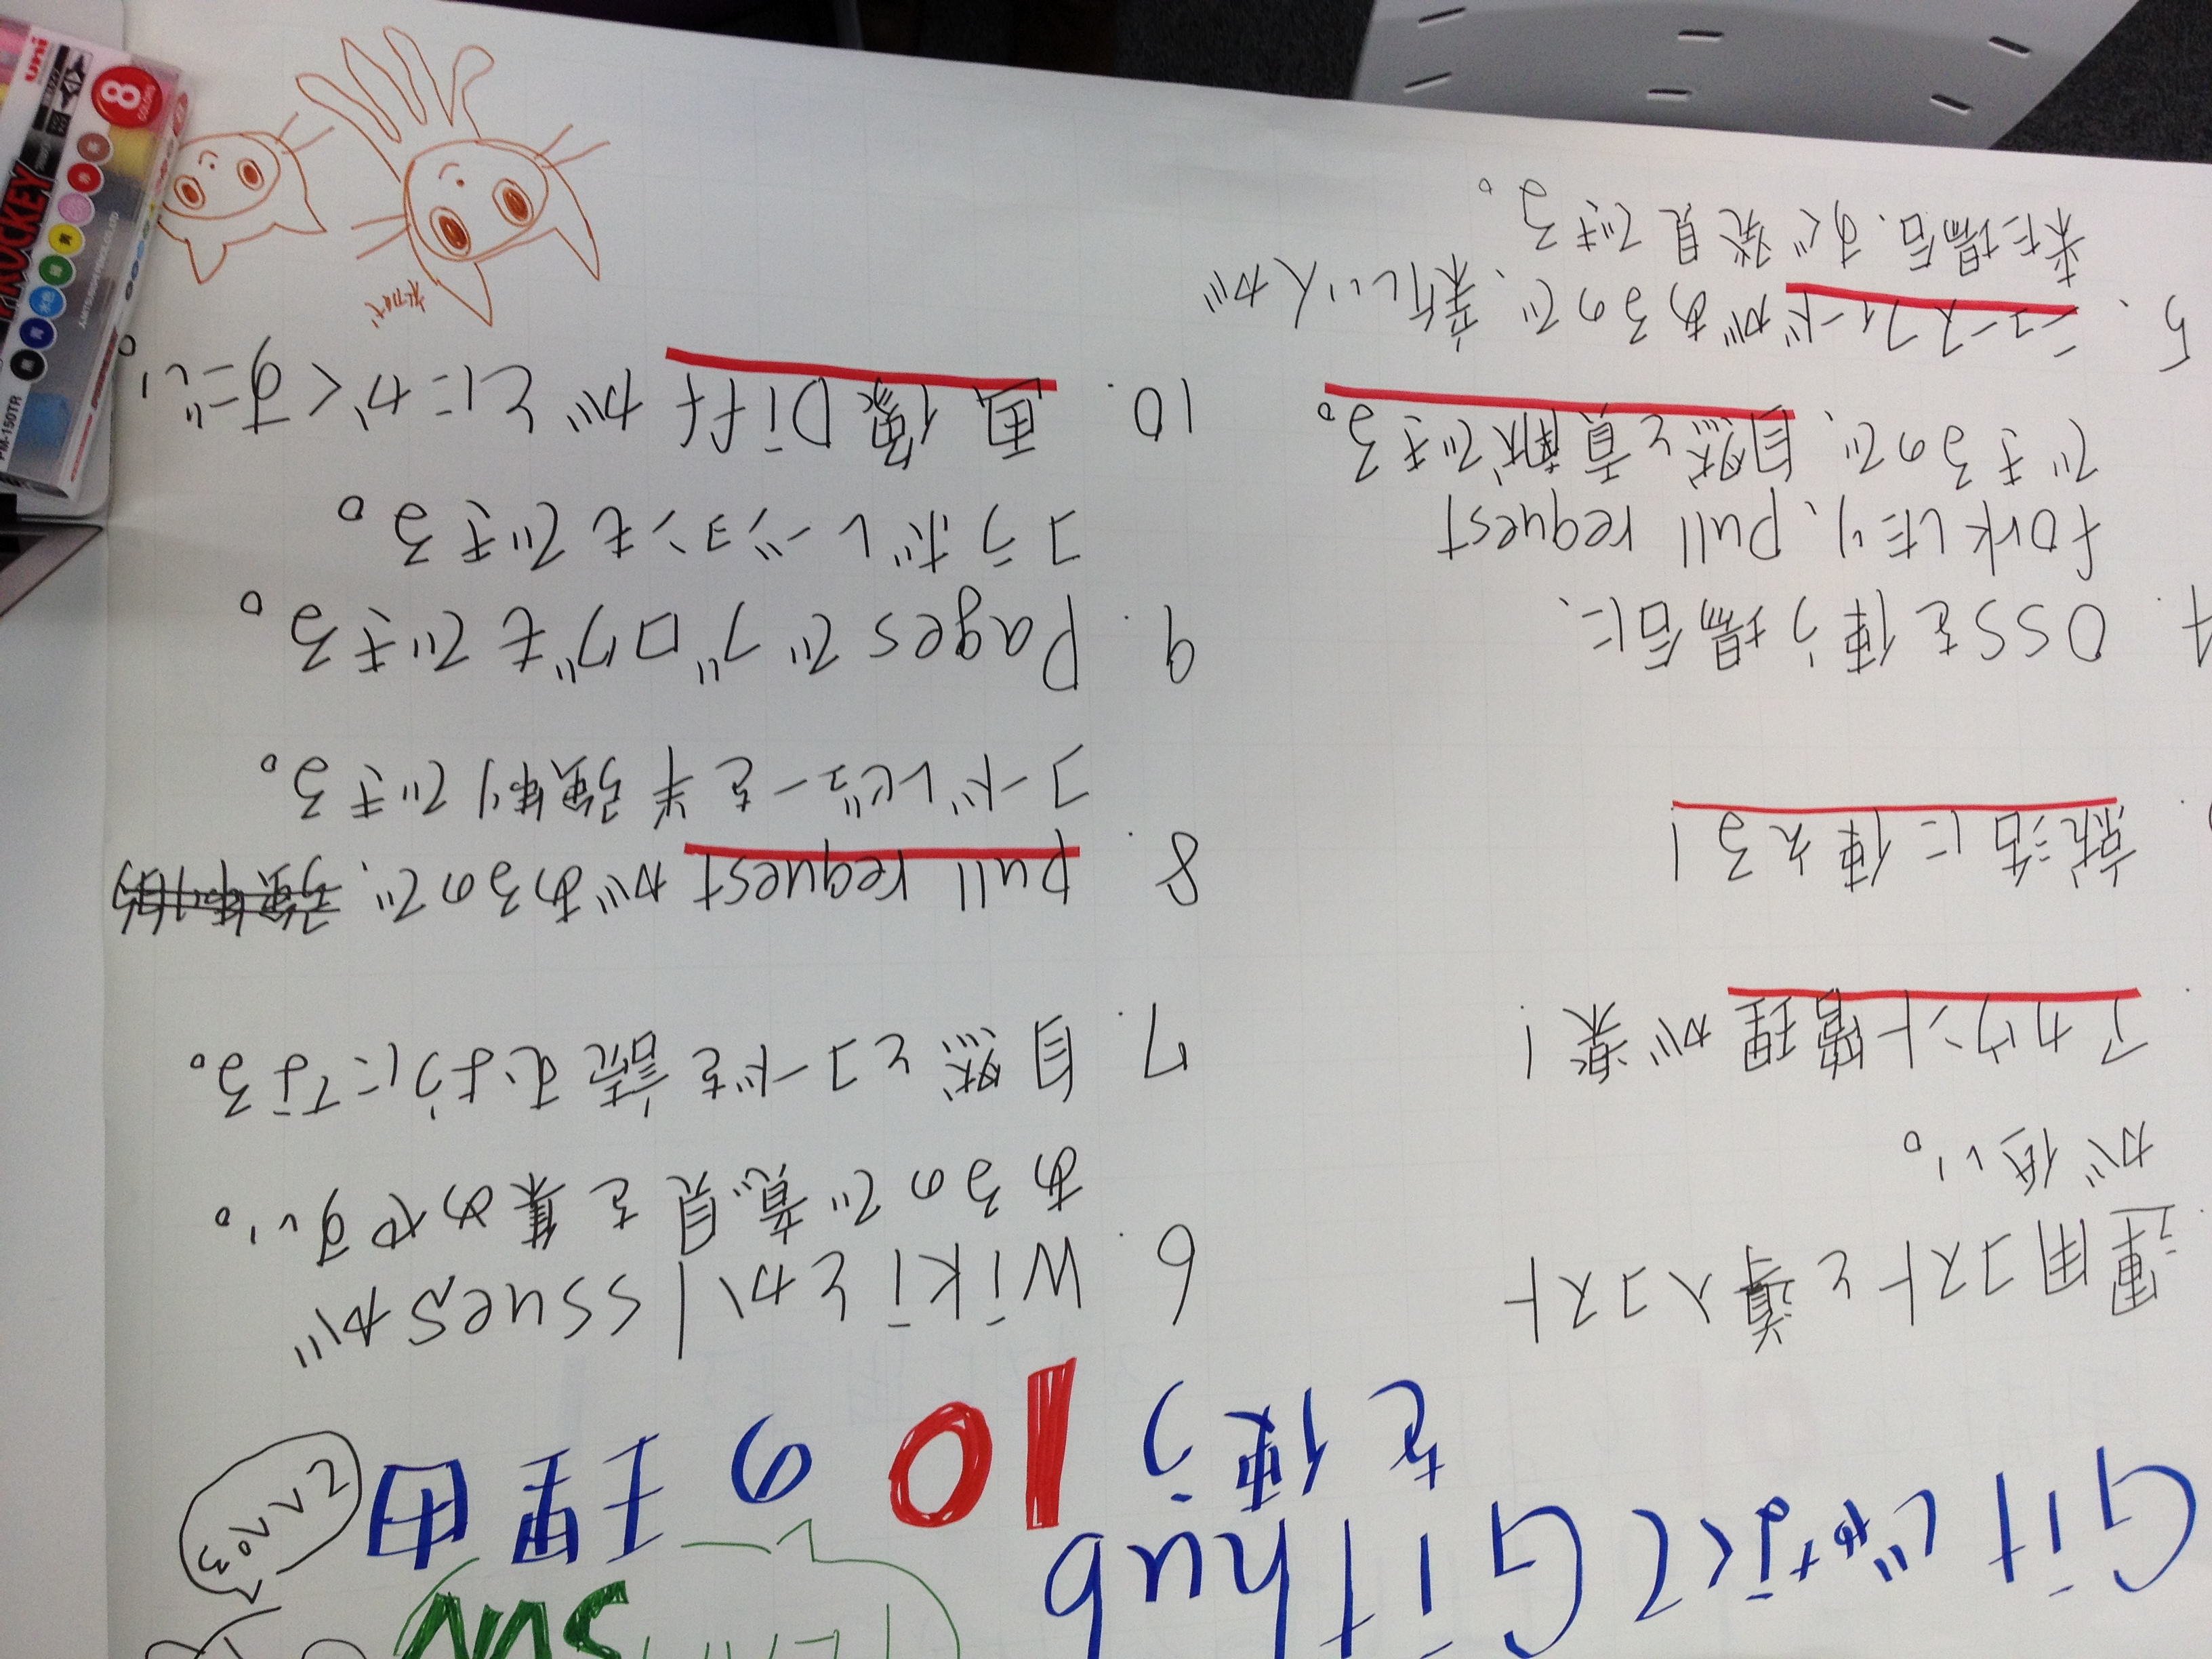 TEAM SVN
GitじゃなくてGithub
を使う10の理由
てへぺろ
運用コストと導入コスト
が低い。
アカウント管理が楽！
就活に使える！
4. OSSを使う場合に、
forkしたり、pull request
できるので、自然と貢献できる。
5、ニュースフィードがあるので、新しい人が
来た場合、すぐ発見できる。
6. WikiとかIssuesが
あるので意見を集めやすい。
7. 自然とコードを読むようになる。
8. pull requestがあるので、強制的
コードレビューを半強制できる。
9. Pagesでブログもできる。
コラボレーションもできる。
10. 画像Diffがとにかくすごい。
初代
PM-150TR
8
COLORS
uni